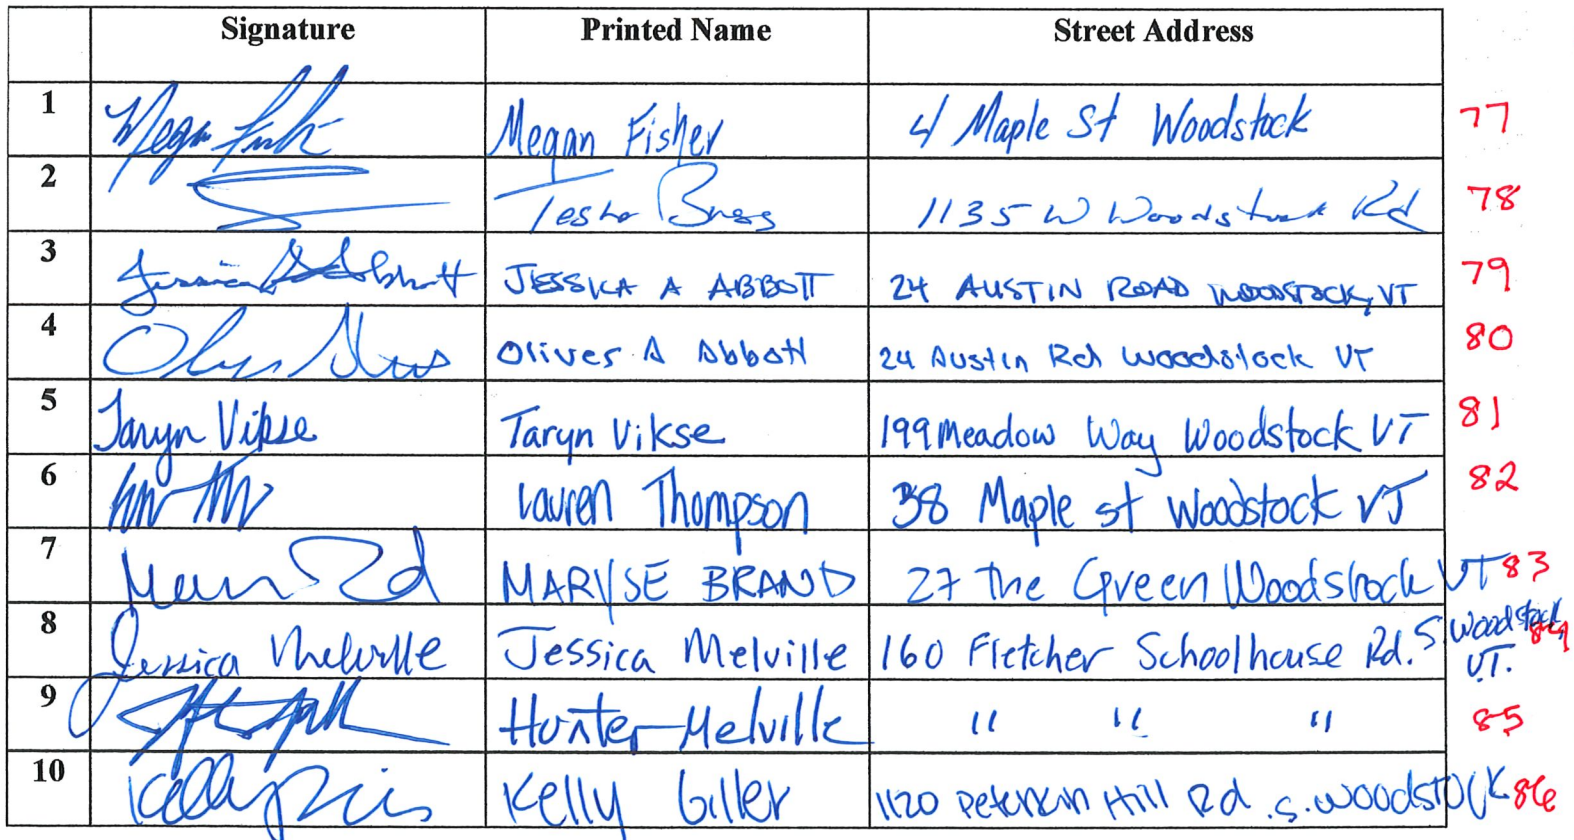 Signature Printed Name Street Address
1 Megan Fisher 4 Maple St Woodstock 77
2 1135 W Woodstock Rd 78
3 Jessica A Abbott JESSICA A ABBOTT 24 AUSTIN ROAD WOODSTOCK, VT 79
4 Oliver A Abbott 24 Austin Rd Woodstock VT 80
5 Taryn Vikse Taryn Vikse 199 Meadow Way Woodstock VT 81
6 Lauren Thompson 38 Maple st Woodstock VT 82
7 MARYSE BRAND 27 The Green Woodstock VT 83
8 Jessica Melville Jessica Melville 160 Fletcher Schoolhouse Rd. S Woodstock, VT. 84
9 Hunter Melville " " " 85
10 Kelly Giller 1120 Peterkin Hill Rd. S. WOODSTOCK 86